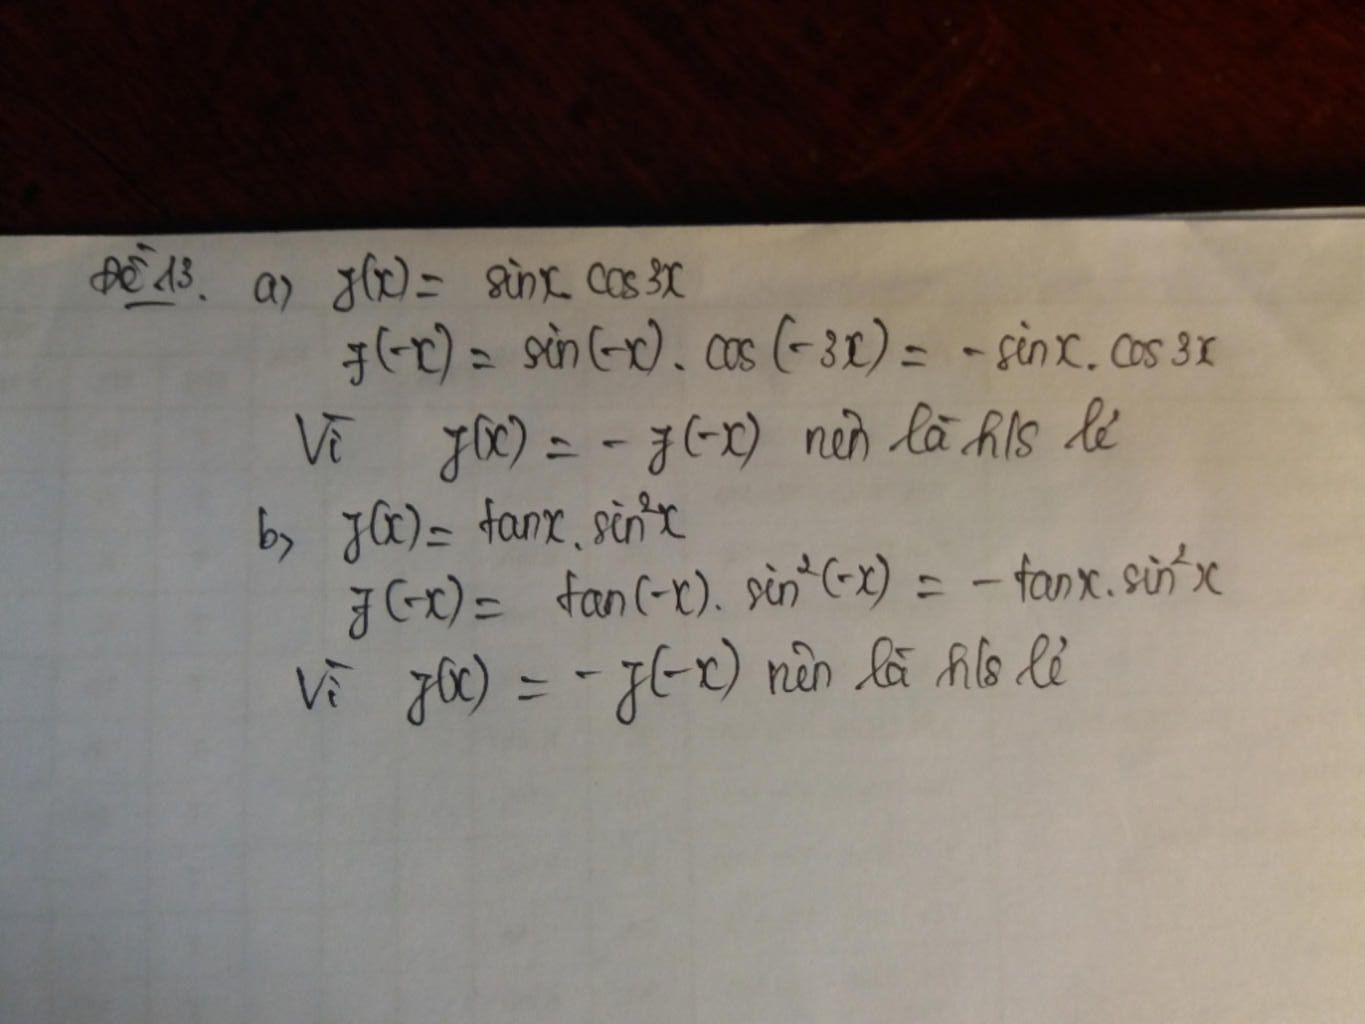 Đề 13. a, y(x) = sinx cos3x
y(-x) = sin(-x). cos(-3x) = -sinx. cos3x
Vì y(x) = - y(-x) nên là h/s lẻ
b, y(x) = tanx. sin²x
y(-x) = tan(-x). sin²(-x) = - tanx. sin²x
Vì y(x) = - y(-x) nên là h/s lẻ